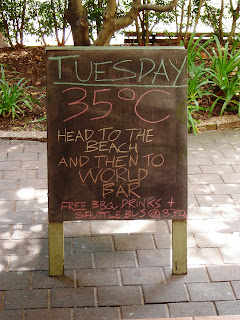 TUESDAY
35°C
HEAD TO THE
BEACH
AND THEN TO
WORLD
BAR
FREE BBQ, DRINKS +
SHUTTLE BUS @ 8.30